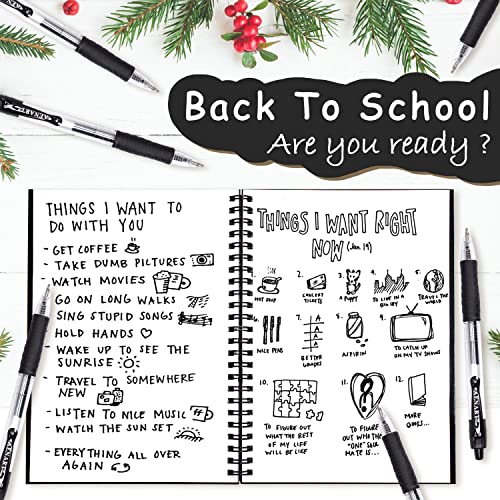 Back To School
Are you ready ?
THINGS I WANT TO
DO WITH YOU
- GET COFFEE
- TAKE DUMB PICTURES
- WATCH MOVIES
GO ON LONG WALKS
SING STUPID SONGS
HOLD HANDS
- WAKE UP TO SEE THE
SUNRISE
- TRAVEL TO SOMEWHERE
NEW
- LISTEN TO NICE MUSIC
- WATCH THE SUN SET
- EVERYTHING ALL OVER
AGAIN
THINGS I WANT RIGHT
NOW (Jan. 19)
1.
HOT SOUP
2.
CONCERT
TICKETS
3.
A PUPPY
4.
TO LIVE IN A
BIG CITY
5.
TRAVEL THE
WORLD
6.
NICE PENS
7.
BETTER
GRADES
8.
ASPIRIN
9.
TO CATCH UP
ON MY TV SHOWS
10.
TO FIGURE OUT
WHAT THE REST
OF MY LIFE
WILL BE LIKE
11.
TO FIGURE
OUT WHO THE
"ONE"
12.
MORE
BOOKS...